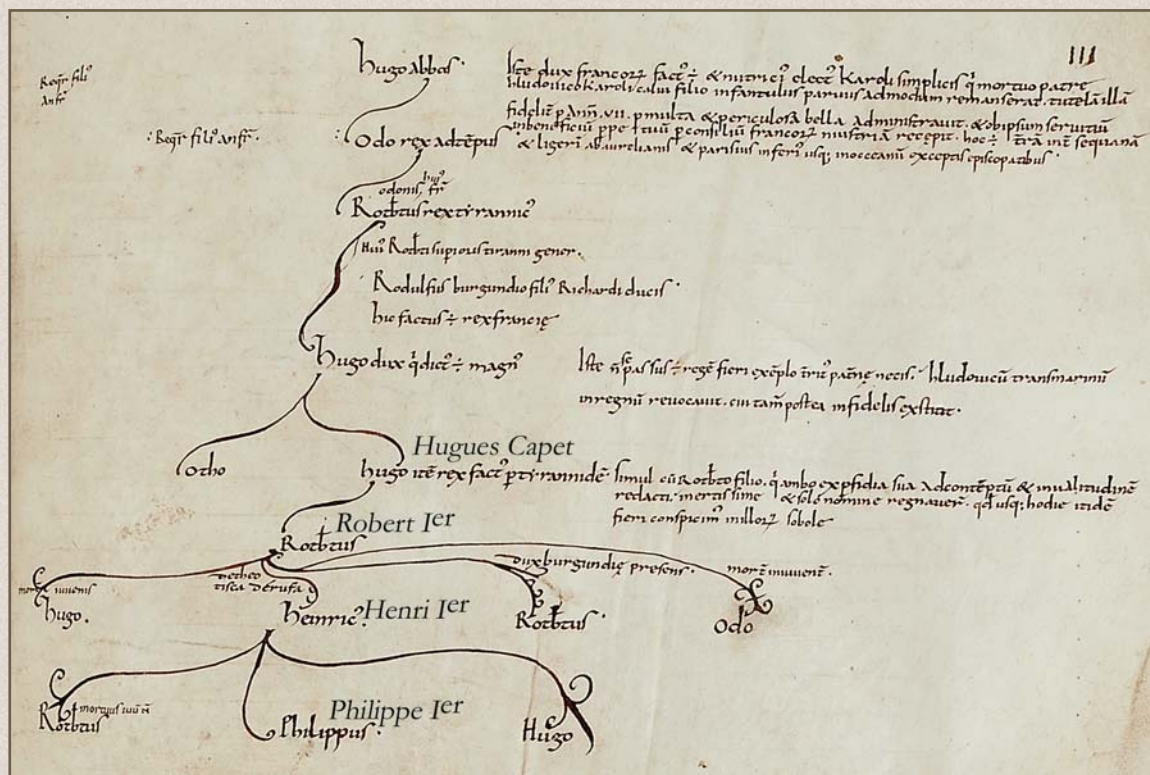 III
Hugo abbas.
Iste dux francorꝝ fact᷒ ÷ & nutrici᷒ elect᷒ Karoli simplicis q̇ mortuo patre
hludovico Karoli calvi filio infantulus parvus admodum remanserat. tutelā illā
fidelit̄ p Ann̄. VII. p multa & periculosa bella Administravit. & ob ipsum servitiū
in beneficiū ppe tuū p consiliū francorꝝ niustriā recepit. hoc ÷ t̄rā int̄ sequanā
& ligerī ab aurelianis & parisius inferi᷒ usq; in occeanū exceptis episcopatibus.
Rog̃r fili᷒
Anf̄r
: Rog̃r fili᷒ anf̄r.
: Odo rex adtēpus
hui᷒
odonis fr̄
Rotb̄tus rex tyrannic᷒
Hui᷒ Rotb̄ti supioris tiranni gener.
Rodulfus burgundio fili᷒ Richardi ducis.
hic factus ÷ rex francię
Hugo dux q̇ dict᷒ ÷ magn᷒
Iste n̄ se passus ÷ regē fieri exēplo t̄rit᷒ pat̄nę necis. hludovicū transmarinū
in regnū revocavit. cui tam̄ postea infidelis exstitit.
Otho
Hugues Capet
hugo itē rex fact᷒ p tyrannidē simul cū Rotb̄to filio. q̇ ambo ex pfidia sua Ad contēptū & invalitudinē
redacti. inertissime & solo nomine regnaver̄. qd usq; hodie itidē
fieri conspicim᷒ in illorꝝ sobole
Robert Ier
Rotb̄tus
mort᷒ iuvenis
Hugo.
Heinric᷒.
Henri Ier
dux burgundię presens.
Rotb̄tus.
mort᷒ in iuvent̄.
Odo
mortuus
Rotb̄tus
Philippe Ier
Philippus.
Hugo